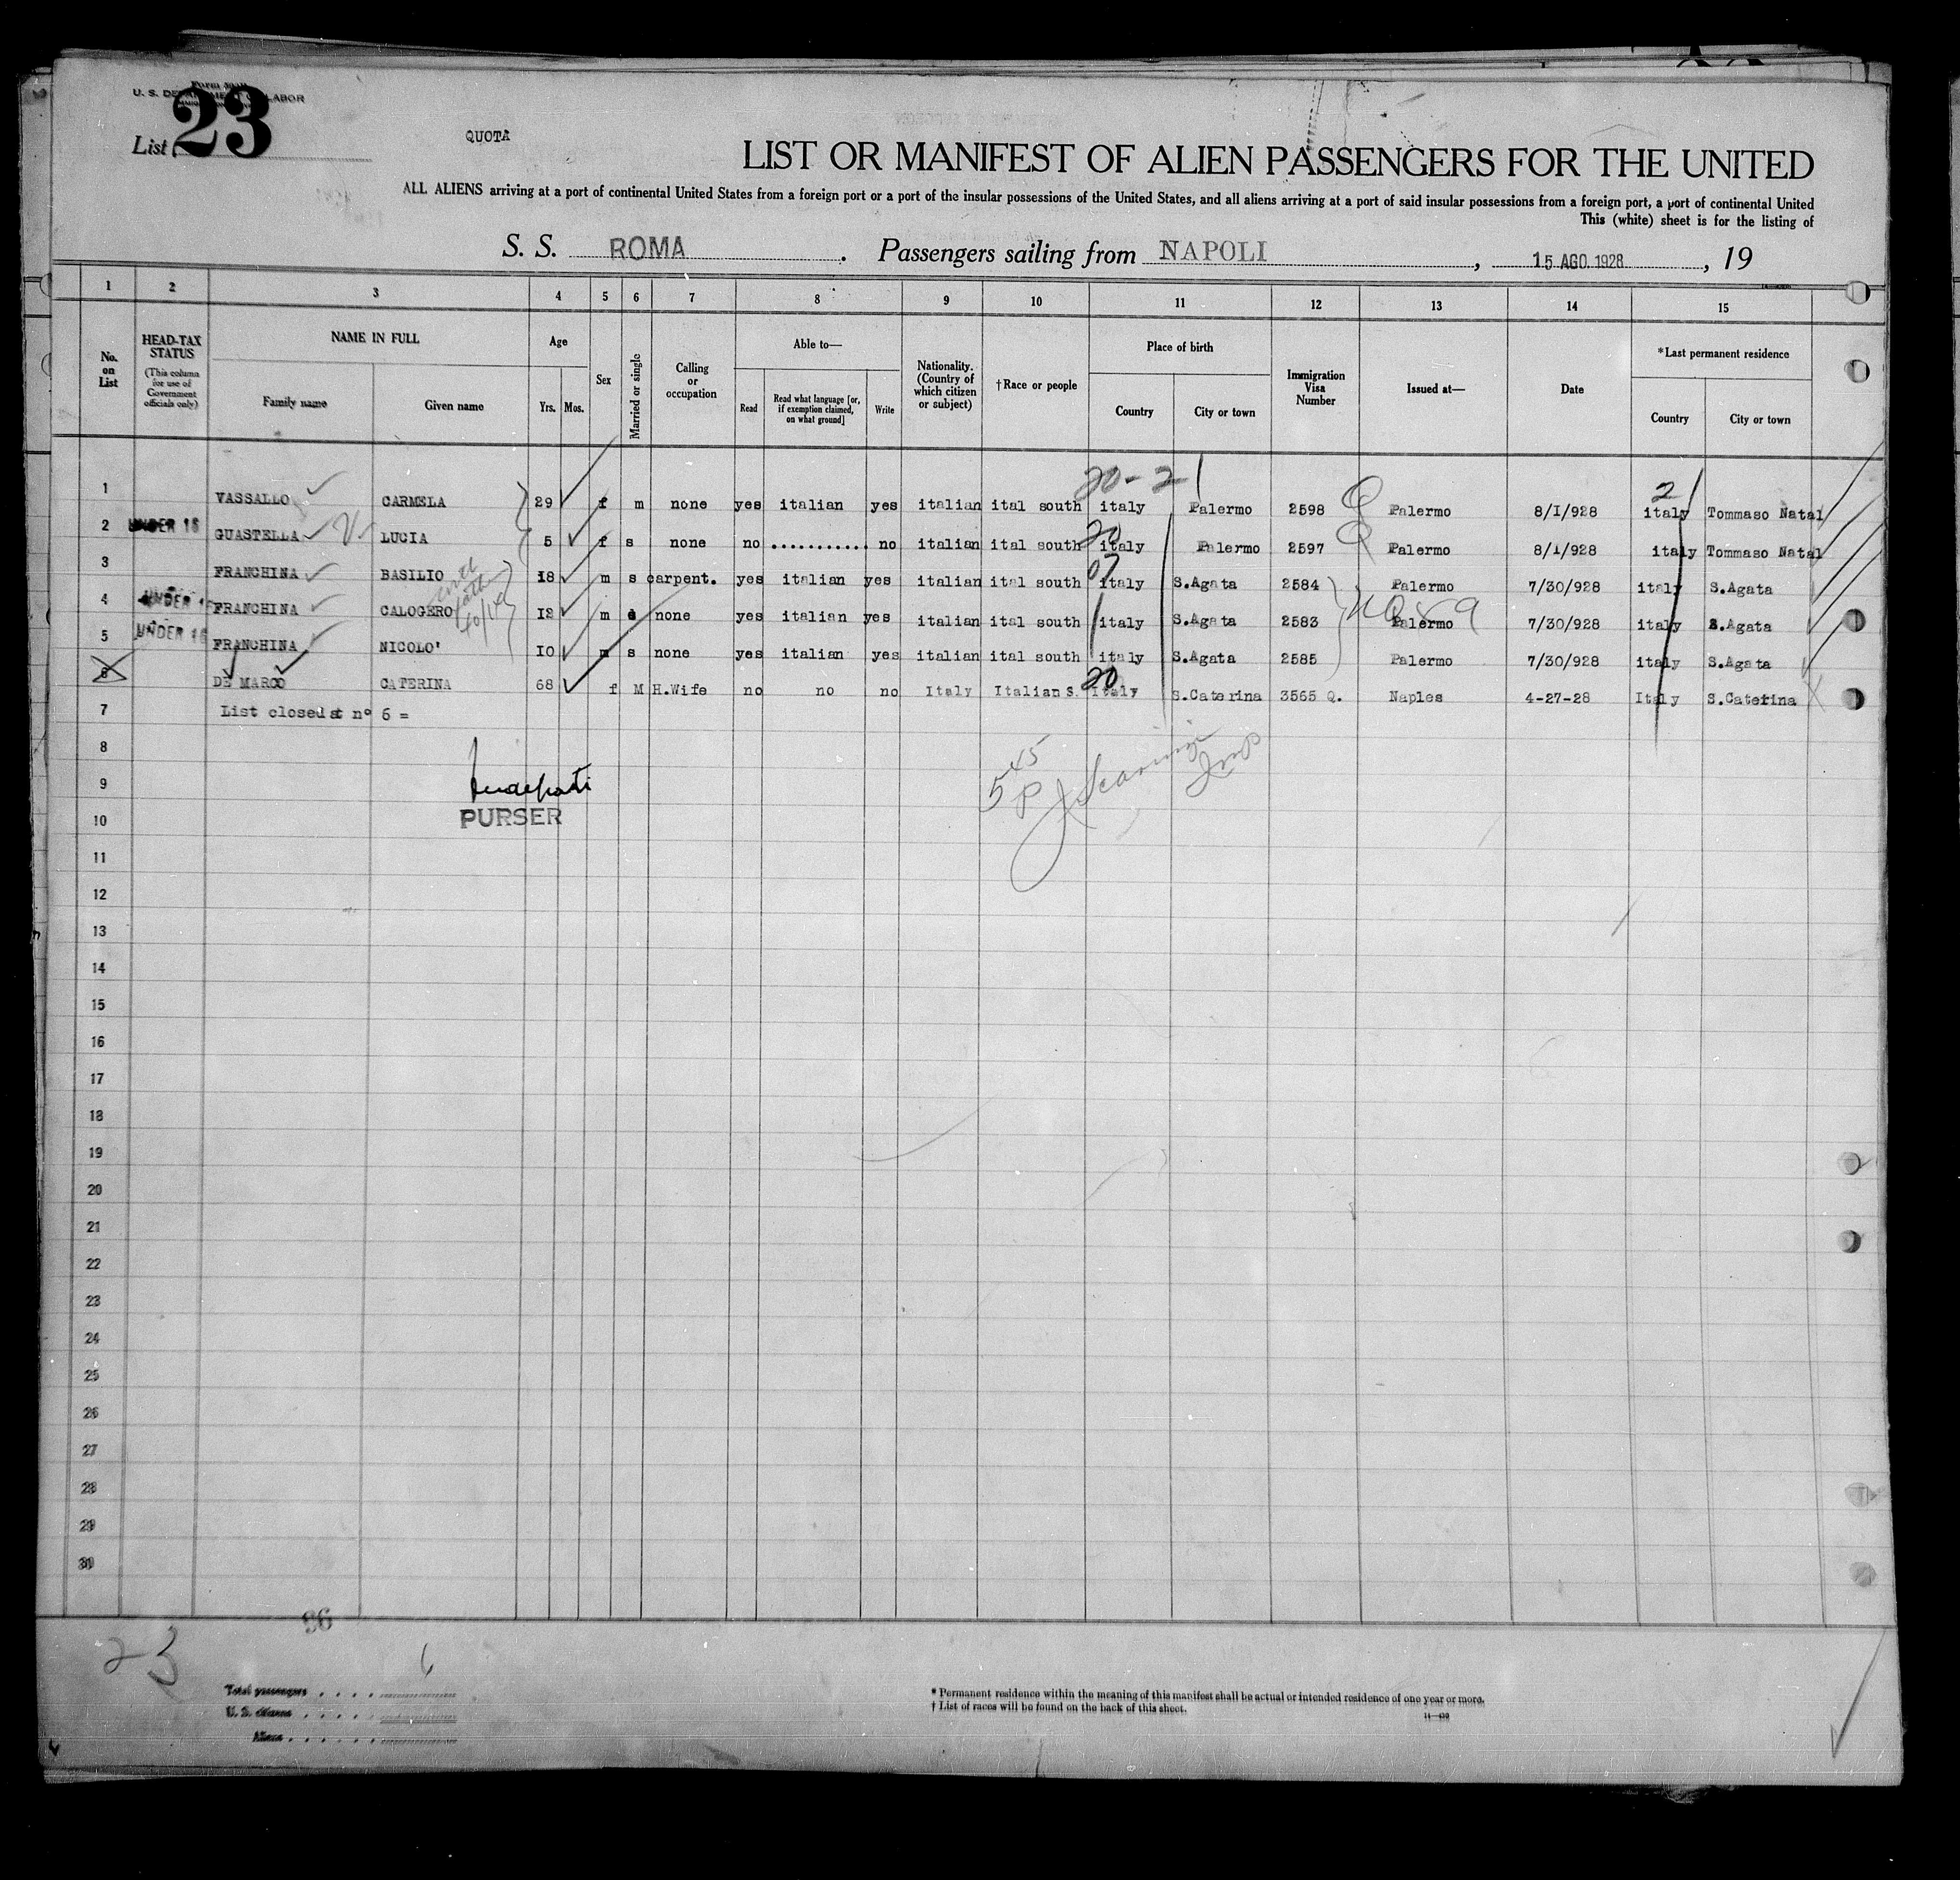 Form 500
U. S. DEPARTMENT OF LABOR
List 23
QUOTA
LIST OR MANIFEST OF ALIEN PASSENGERS FOR THE UNITED
ALL ALIENS arriving at a port of continental United States from a foreign port or a port of the insular possessions of the United States, and all aliens arriving at a port of said insular possessions from a foreign port, a port of continental United
This (white) sheet is for the listing of
S. S. ROMA. Passengers sailing from NAPOLI, 15 AGO. 1928, 19
1 2 3 4 5 6 7 8 9 10 11 12 13 14 15
No. on List
HEAD-TAX STATUS (This column for use of Government officials only)
NAME IN FULL
Family name Given name
Age
Yrs. Mos.
Sex
Married or single
Calling or occupation
Able to—
Read Read what language [or, if exemption claimed, on what ground] Write
Nationality. (Country of which citizen or subject)
†Race or people
Place of birth
Country City or town
Immigration Visa Number
Issued at—
Date
*Last permanent residence
Country City or town
20-2 2
1 VASSALLO CARMELA 29 f m none yes italian yes italian ital south italy Palermo 2598 Q Palermo 8/I/928 italy Tommaso Natal
2 UNDER 16 GUASTELLA LUCIA 5 f s none no ............ no italian ital south 20 italy Palermo 2597 Q Palermo 8/1/928 italy Tommaso Natal
3 FRANCHINA BASILIO 18 m s carpent. yes italian yes italian ital south 07 italy S.Agata 2584 Palermo 7/30/928 italy S.Agata
4 UNDER 16 FRANCHINA CALOGERO 12 m s none yes italian yes italian ital south italy S.Agata 2583 Palermo 7/30/928 italy S.Agata
5 UNDER 16 FRANCHINA NICOLO' 10 m s none yes italian yes italian ital south italy S.Agata 2585 Palermo 7/30/928 italy S.Agata
6 DE MARCO CATERINA 68 f M H.Wife no no no Italy Italian S. 20 Italy S.Caterina 3565 Q. Naples 4-27-28 Italy S.Caterina
7 List closed at n° 6 =
8
9
PURSER
10
11
12
13
14
15
16
17
18
19
20
21
22
23
24
25
26
27
28
29
30
96
23
6
Total passengers
U. S. citizens
Aliens
* Permanent residence within the meaning of this manifest shall be actual or intended residence of one year or more.
† List of races will be found on the back of this sheet.